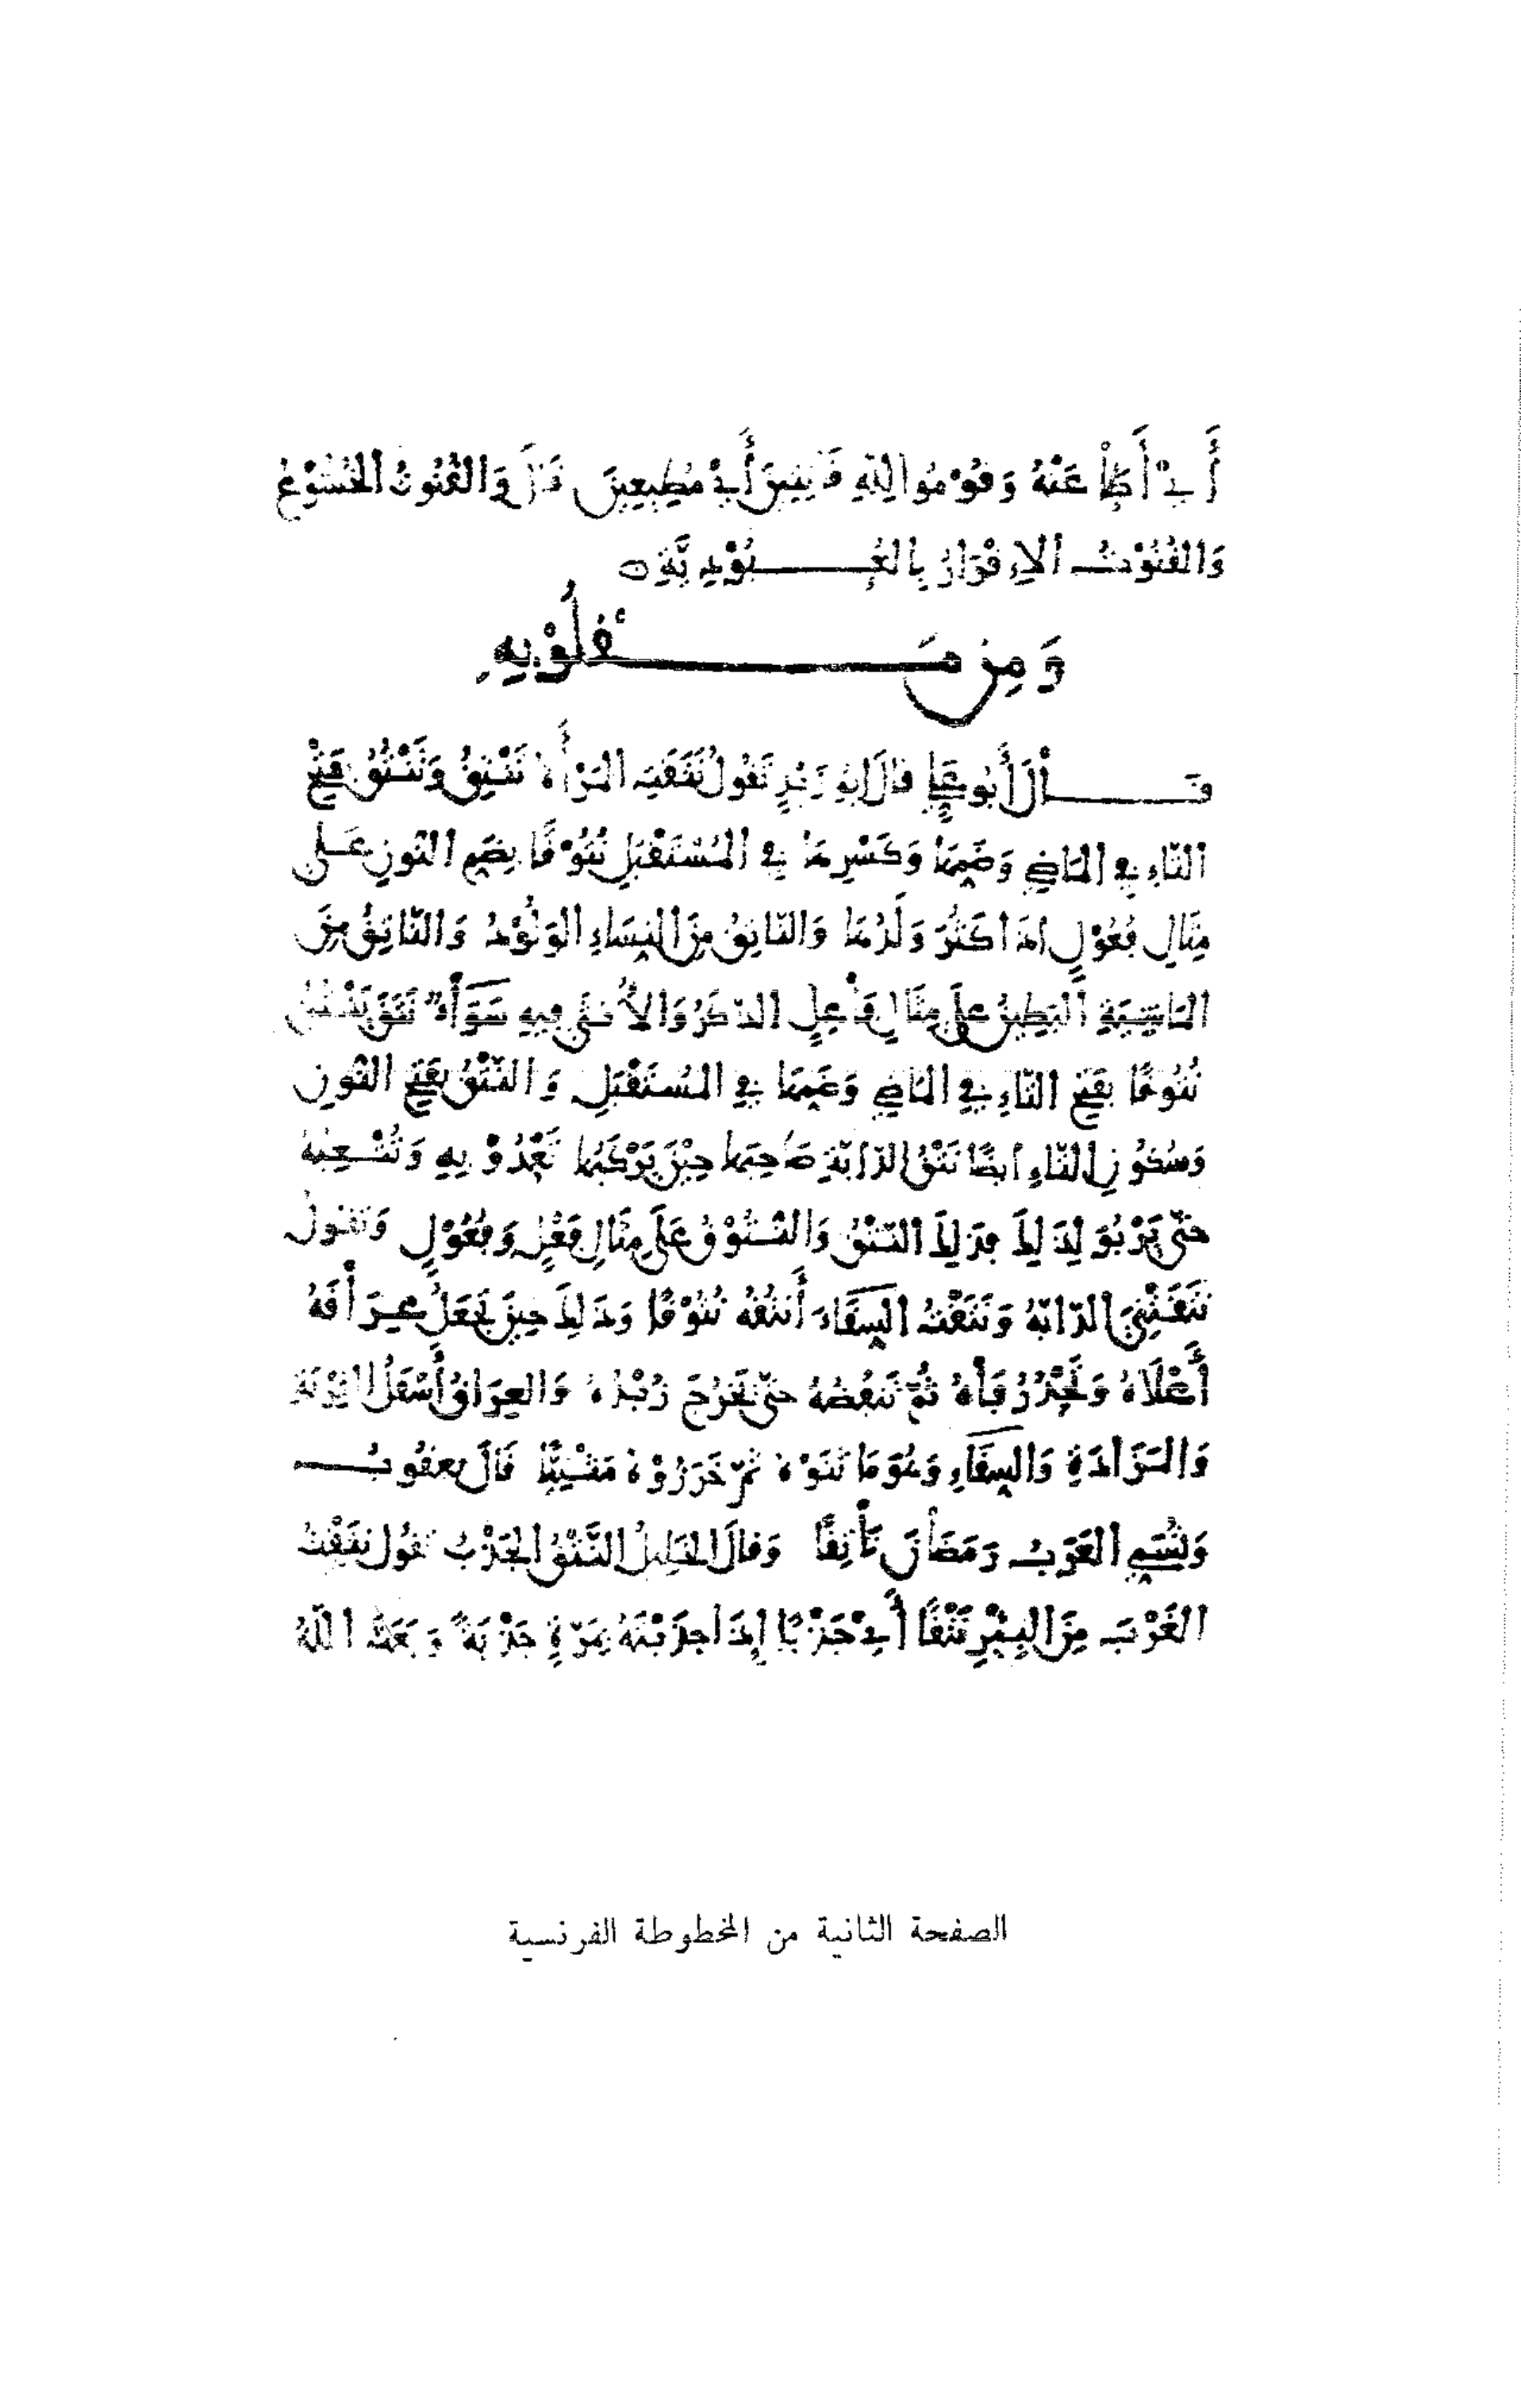 أَيْ أَطَاعَتْهُ وَقُوْمُوا لِلّهِ قَانِتِيْنَ أَيْ مُطِيعِيْنَ قَالَ وَالقُنُوتُ الخُشُوْعُ
وَالقُنُوْتُ الإِقْرَارُ بِالعُبُوْدِيَّةِ
وَمِنْ مَقْلُوْبِهِ
قَالَ أَبُو عَلِيٍّ قَالَ أَبُو زَيْدٍ تَقُولُ نَتَقَتِ المَرْأَةُ تَنْتِقُ وَتَنْتُقُ بِفَتْحِ
التَّاءِ فِي المَاضِي وَضَمِّهَا وَكَسْرِهَا فِي المُسْتَقْبَلِ نُتُوْقًا بِضَمِّ النُّونِ عَلَى
مِثَالِ فُعُوْلٍ إِذَا كَثُرَ وَلَدُهَا وَالنَّاتِقُ مِنَ النِّسَاءِ الوَلُوْدُ وَالنَّاتِقُ مِنَ
المَاشِيَةِ البَطِينُ عَلَى مِثَالِ فَاعِلٍ الذَّكَرُ وَالأُنْثَى فِيهِ سَوَآءٌ نَتَقَ يَنْتُقُ
نُتُوقًا بِفَتْحِ التَّاءِ فِي المَاضِي وَضَمِّهَا فِي المُسْتَقْبَلِ وَالنَّتْقُ بِفَتْحِ النُّونِ
وَسُكُوْنِ التَّاءِ أَيْضًا نَتْقُ الدَّابَّةِ صَاحِبَهَا حِيْنَ يَرْكَبُهَا تَعْدُوْ بِهِ وَتُتْعِبُهُ
حَتَّى يَرْبُوَ لِذَلِكَ فَذَلِكَ النَّتْقُ وَالنُّتُوْقُ عَلَى مِثَالِ فَعْلٍ وَفُعُوْلٍ وَتَقُولُ
نَتَقَتْنِيَ الدَّابَّةُ وَنَتَقْتُ السِّقَاءَ أَنْتُقُهُ نُتُوْقًا وَذَلِكَ حِيْنَ تَجْعَلُ عِرَاقَهُ
أَعْلَاهُ وَتَحْدُرُ فَأْهُ ثُمَّ تَنْفُضُهُ حَتَّى تُخْرِجَ زُبْدَهُ وَالعِرَاقُ أَسْفَلُ القِرْبَةِ
وَالمَزَادَةِ وَالسِّقَاءِ وَهُوَ مَا ثَنَوْهُ ثُمَّ خَرَزُوْهُ مَثْنِيًّا قَالَ يعقُوبُ
وَتُسَمِّي العَرَبُ رَمَضَانَ نَاتِقًا وَقَالَ الخَلِيلُ النَّتْقُ الجَذْبُ تَقُولُ نَتَقْتُ
الغَرْبَ مِنَ البِئْرِ نَتْقًا أَيْ جَذْبًا إِذَا جَذَبْتَهُ بِمَرَّةٍ جَذْبَةً وَبَعَثَ اللَّهُ
الصفحة الثانية من المخطوطة الفرنسية